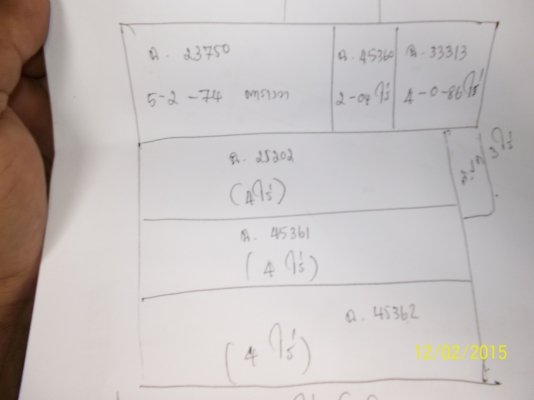 ฉ. 23750
5-2-74 ตารางวา
ฉ. 45360
2-04 ไร่
ฉ. 33313
4-0-86 ไร่
3 ไร่
ฉ. 25202
(4 ไร่)
ฉ. 45361
(4 ไร่)
ฉ. 45362
(4 ไร่)
12/02/2015